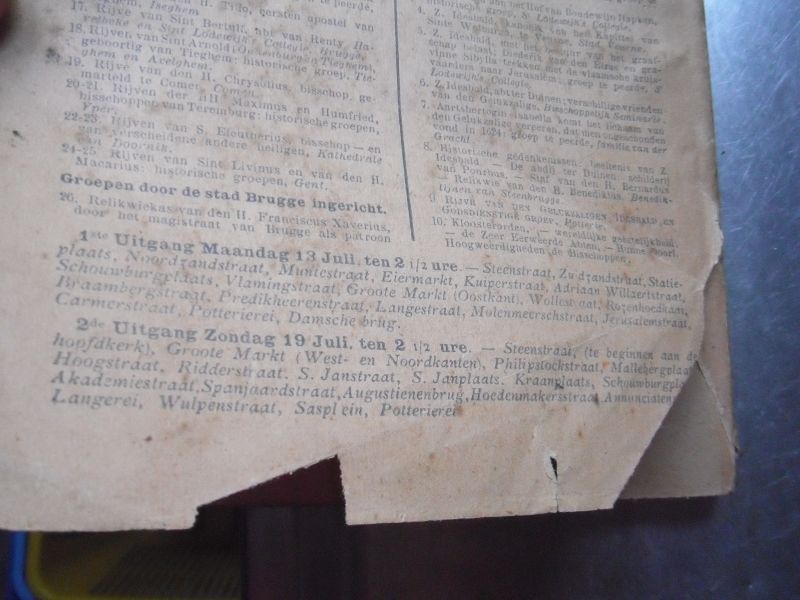 van den H. Tillo, eersten apostel van
Iseghem.
17. Rijve van Sint Bertulf, abt van Renty, Ha-
relbeke en Sint Lodewijks Collegie, Brugge.
18. Rijven van Sint Arnold (Oudenburg en Tieghem),
geboortig van Tieghem: historische groep, Tie-
ghem en Avelghem.
19. Rijve van den H. Chrysolius, bisschop, ge-
marteld te Comen, Comen.
20-21. Rijven der HH. Maximus en Humfried,
bisschoppen van Terenburg: historische groepen,
Yper.
22-23. Rijven van S. Eleutherius, bisschop — en
van verscheidene andere heiligen, Kathedrale
van Doornik.
24-25. Rijven van Sint Livinus en van den H.
Macarius: historische groepen, Gent.
Groepen door de stad Brugge ingericht.
26. Relikwiekas van den H. Franciscus Xaverius,
door het magistraat van Brugge als patroon
aan het Hof van Boudewijn Hapken,
historische groep, S. Lodewijks Collegie.
4. Z. Idesbald, (kanunik van het Kapitel van
Sinte Walburga te Veurne, Stad Veurne.
5. Z. Idesbald, met het bestuur van het graaf-
schap belast. Diederik van den Elzas en gra-
vinne Sibylla trekken met de vlaamsche kruis-
vaarders naar Jerusalem: groep te peerde, S.
Lodewijks Collegie.
6. Z. Idesbald, abt ter Duinen; verschillige vrienden
van den Gelukzalige, Bisschoppelijk Seminarie.
7. Aartshertogin Isabella komt het lichaam van
den Gelukzalige vereeren, dat men ongeschonden
vond in 1624: groep te peerde, familie van der
Gracht.
8. Historische gedenkenissen: beeltenis van Z.
Idesbald. — De abdij ter Duinen, schilderij
van Pourbus. — Staf van den H. Bernardus
— Relikwie van den H. Benediktus, Benedik-
tijnen van Steenbrugge.
9. Rijve van den Gelukzaligen Idesbald, en
Godsdienstige groep, Potterie.
10. Kloosterorden, — wereldlijke geestelijkheid,
— de Zeer Eerweerde Abten, — Hunne Doorl.
Hoogweerdigheden de Bisschoppen.
1ste Uitgang Maandag 13 Juli, ten 2 1/2 ure. — Steenstraat, Zuidzandstraat, Statie-
plaats, Noordzandstraat, Muntestraat, Eiermarkt, Kuiperstraat, Adriaan Willaertstraat,
Schouwburgplaats, Vlamingstraat, Groote Markt (Oostkant), Wollestraat, Rozenhoedkaai,
Braambergstraat, Predikheerenstraat, Langestraat, Molenmeerschstraat, Jerusalemstraat,
Carmerstraat, Potterierei, Damsche brug.
2de Uitgang Zondag 19 Juli, ten 2 1/2 ure. — Steenstraat, (te beginnen aan de
hoofdkerk), Groote Markt (West- en Noordkanten), Philipstockstraat, Mallebergplaats
Hoogstraat, Ridderstraat. S. Janstraat, S. Janplaats. Kraanplaats, Schouwburgpla
Akademiestraat, Spanjaardstraat, Augustienenbrug, Hoedenmakersstraat, Annunciaten
Langerei, Wulpenstraat, Sasplein, Potterierei